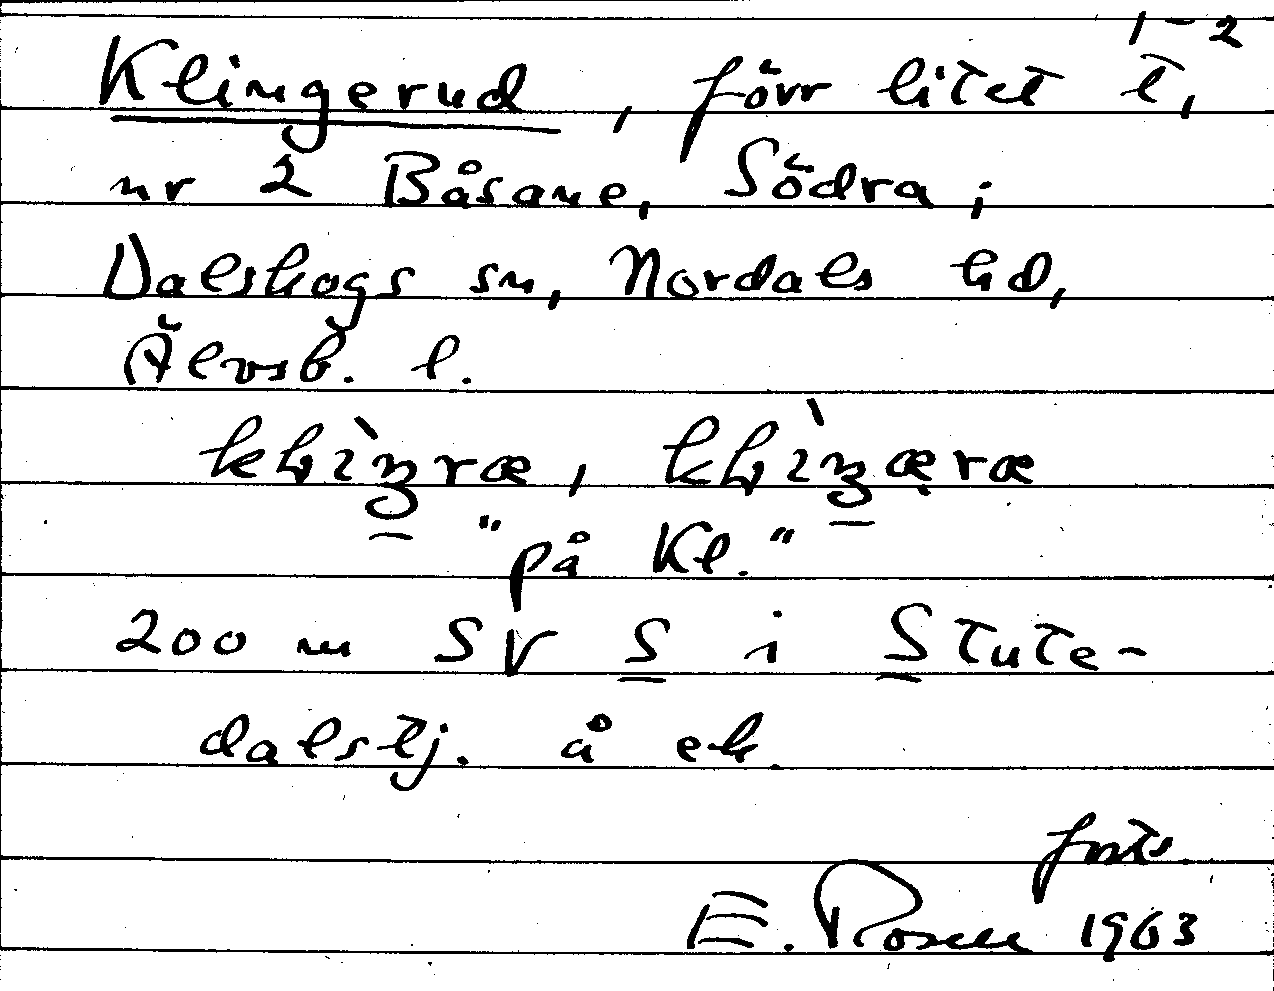 1-2
Klingerud, förr litet t,
nr 2 Båsane, Södra;
Dalskogs sn, Nordals hd,
Älvsb. l.
"på Kl."
200 m SV S i Stute-
dalstj. å ek.
forts.
E. Rosell 1963